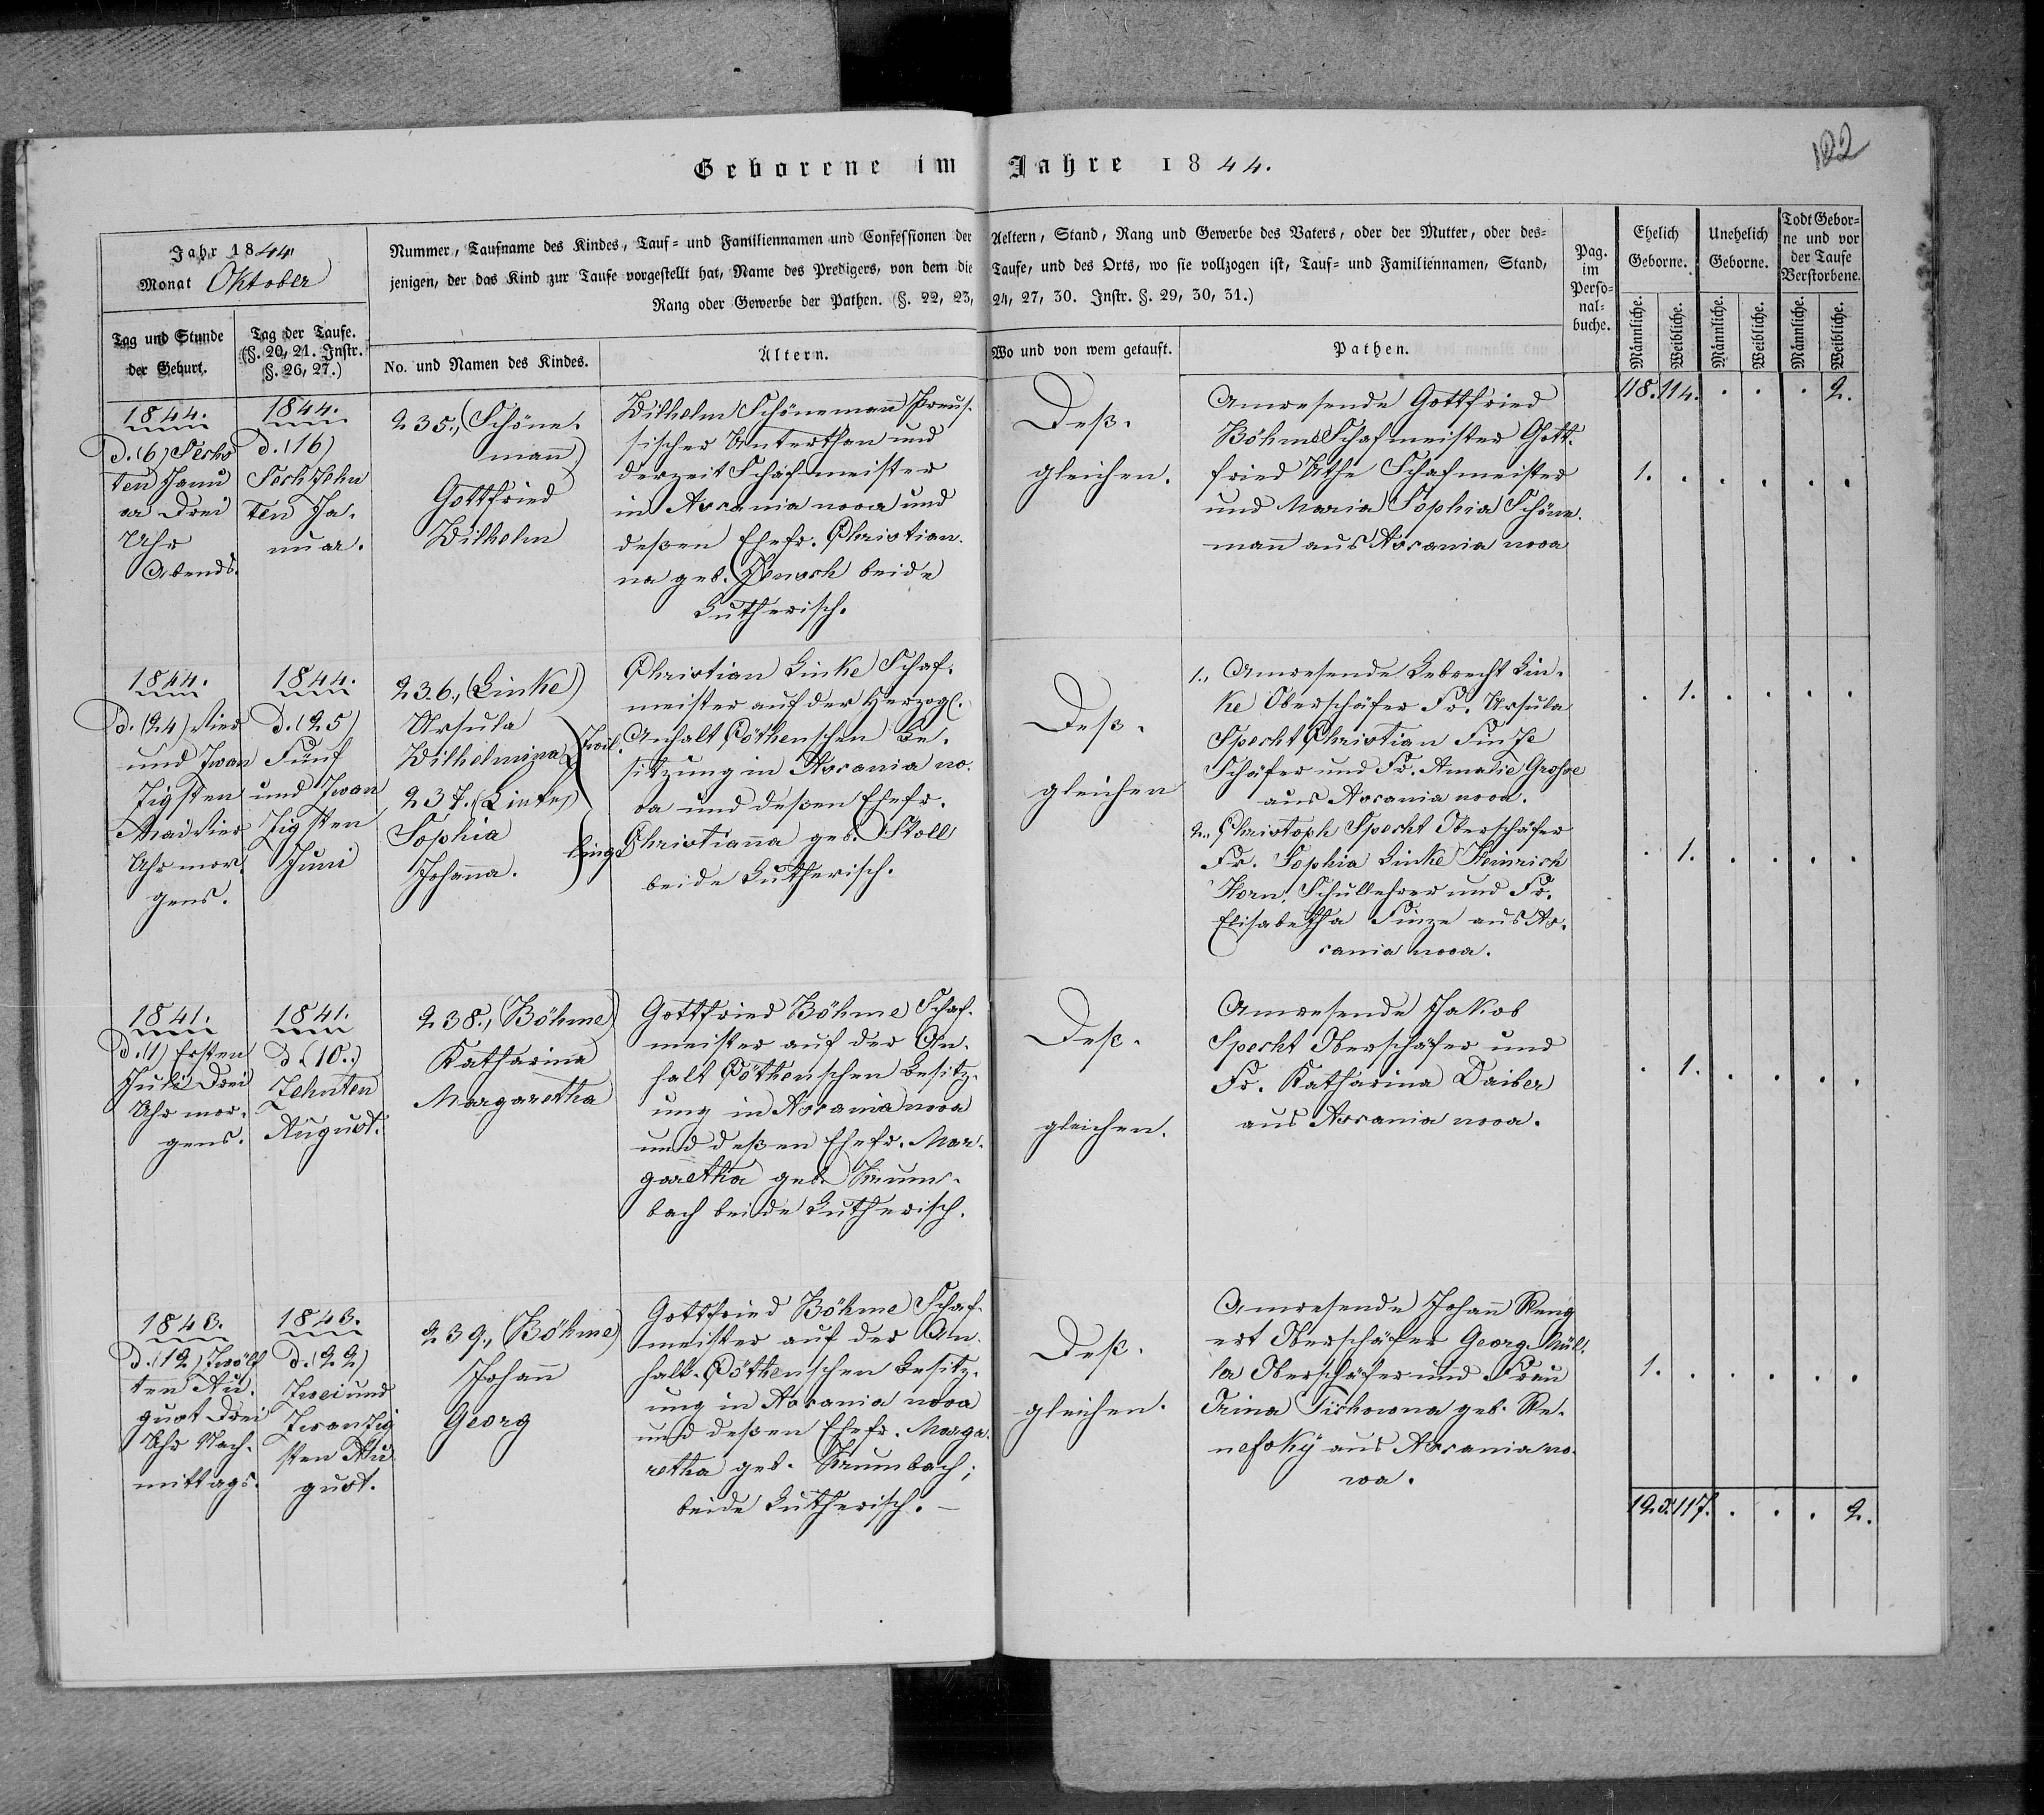 122
Geborene im Jahre 1844.
Jahr 1844
Monat Oktober
Nummer, Taufname des Kindes, Tauf- und Familiennamen und Confessionen der Aeltern, Stand, Rang und Gewerbe des Vaters, oder der Mutter, oder des-
jenigen, der das Kind zur Taufe vorgestellt hat, Name des Predigers, von dem die Taufe, und des Orts, wo sie vollzogen ist, Tauf- und Familiennamen, Stand,
Rang oder Gewerbe der Pathen. (§. 22, 23, 24, 27, 30. Instr. §. 29, 30, 31.)
Tag und Stunde
der Geburt.
Tag der Taufe.
(§. 20, 21. Instr.
§. 26, 27.)
No. und Namen des Kindes.
Ältern.
Wo und von wem getauft.
Pathen.
Pag.
im
Perso-
nal-
buche.
Ehelich
Geborne.
Unehelich
Geborne.
Todt Gebor-
ne und vor
der Taufe
Verstorbene.
Männliche.
Weibliche.
Männliche.
Weibliche.
Männliche.
Weibliche.
118. 114. . . . 2.
1844.
D. (6) Sechs
ten Janu
ar Drei
Uhr
Abends.
1844.
D. (16)
Sechzehn
ten Ja.
nuar.
235., (Schöne.
mann)
Gottfried
Wilhelm
Wilhelm Schönemann Preus.
sischer Unterthan und
derzeit Schafmeister
in Ascania nova und
deßen Ehefr. Christian.
na geb. beide
Lutherisch.
Deß.
gleichen.
Anwesende Gottfried
Böhme Schafmeister Gott.
fried Uthe Schafmeister
und Maria Sophia Schöne.
mann aus Ascania nova
1. . . . . .
1844.
D. (24) Vier
und Zwan
zigsten
Mai Vier
Uhr mor.
gens.
1844.
D. (25)
Fünf
und Zwan
zigsten
Juni
236., (Linke)
Ursula
Wilhelmina
237. (Linke)
Sophia
Johanna.
Zwil.
linge
Christian Linke Schaf.
meister auf der Herzogl.
Anhalt Cöthenschen Be.
sitzung in Ascania no.
va und deßen Ehefr.
Christianna geb. Stoll
beide Lutherisch.
Deß.
gleichen
1., Anwesende Lebrecht Lin.
ke Oberschäfer Fr. Ursula
Specht Christian Finze
Schäfer und Fr. Amalie Grosse
aus Ascania nova.
2., Christoph Specht Oberschäfer
Fr. Sophia Linke Heinrich
Horn, Schullehrer und Fr.
Elisabetha Finze aus As.
cania nova.
. 1. . . . .
. 1. . . . .
1841.
D. (1) Ersten
Juli Drei
Uhr mor.
gens.
1841.
d. (10.)
Zehnten
August.
238., (Böhme)
Katharina
Margaretha
Gottfried Böhme Schaf.
meister auf der An.
halt Cöthenschen Besitz.
ung in Ascania nova
und deßen Ehefr. Mar.
garetha geb. Krum.
bach beide Lutherisch.
Deß.
gleichen.
Anwesende Jakob
Specht Oberschäfer und
Fr. Katharina Daiber
aus Ascania nova.
. 1. . . . .
1843.
D. (12) Zwölf
ten Au.
gust Drei
Uhr Nach.
mittags.
1843.
D. (22)
Zwei und
Zwanzig
sten Au
gust.
239., (Böhme)
Johann
Georg
Gottfried Böhme Schaf.
meister auf der An.
halt-Cöthenschen Besitz.
ung in Ascania nova
und deßen Ehefr. Marga.
retha geb. Krumbach;
beide Lutherisch. –
Deß.
gleichen.
Anwesende Johann Reng
ert Oberschäfer Georg Mül.
ler Oberschäfer und Frau
Irina Tichowna geb.
aus Ascania no.
wa.
1. . . . . .
120. 117. . . . 2.